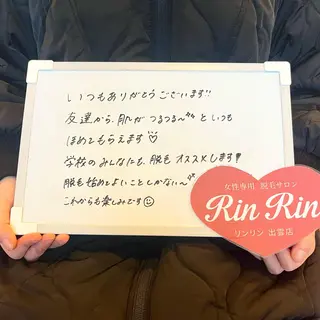 いつもありがとうございます!!
友達から、肌がつるつる〜といつも
ほめてもらえます♡
学校のみんなにも、脱毛オススメします!
脱毛始めてよいことしかない〜
これからも楽しみです☺
女性専用 脱毛サロン
Rin Rin
リンリン 出雲店